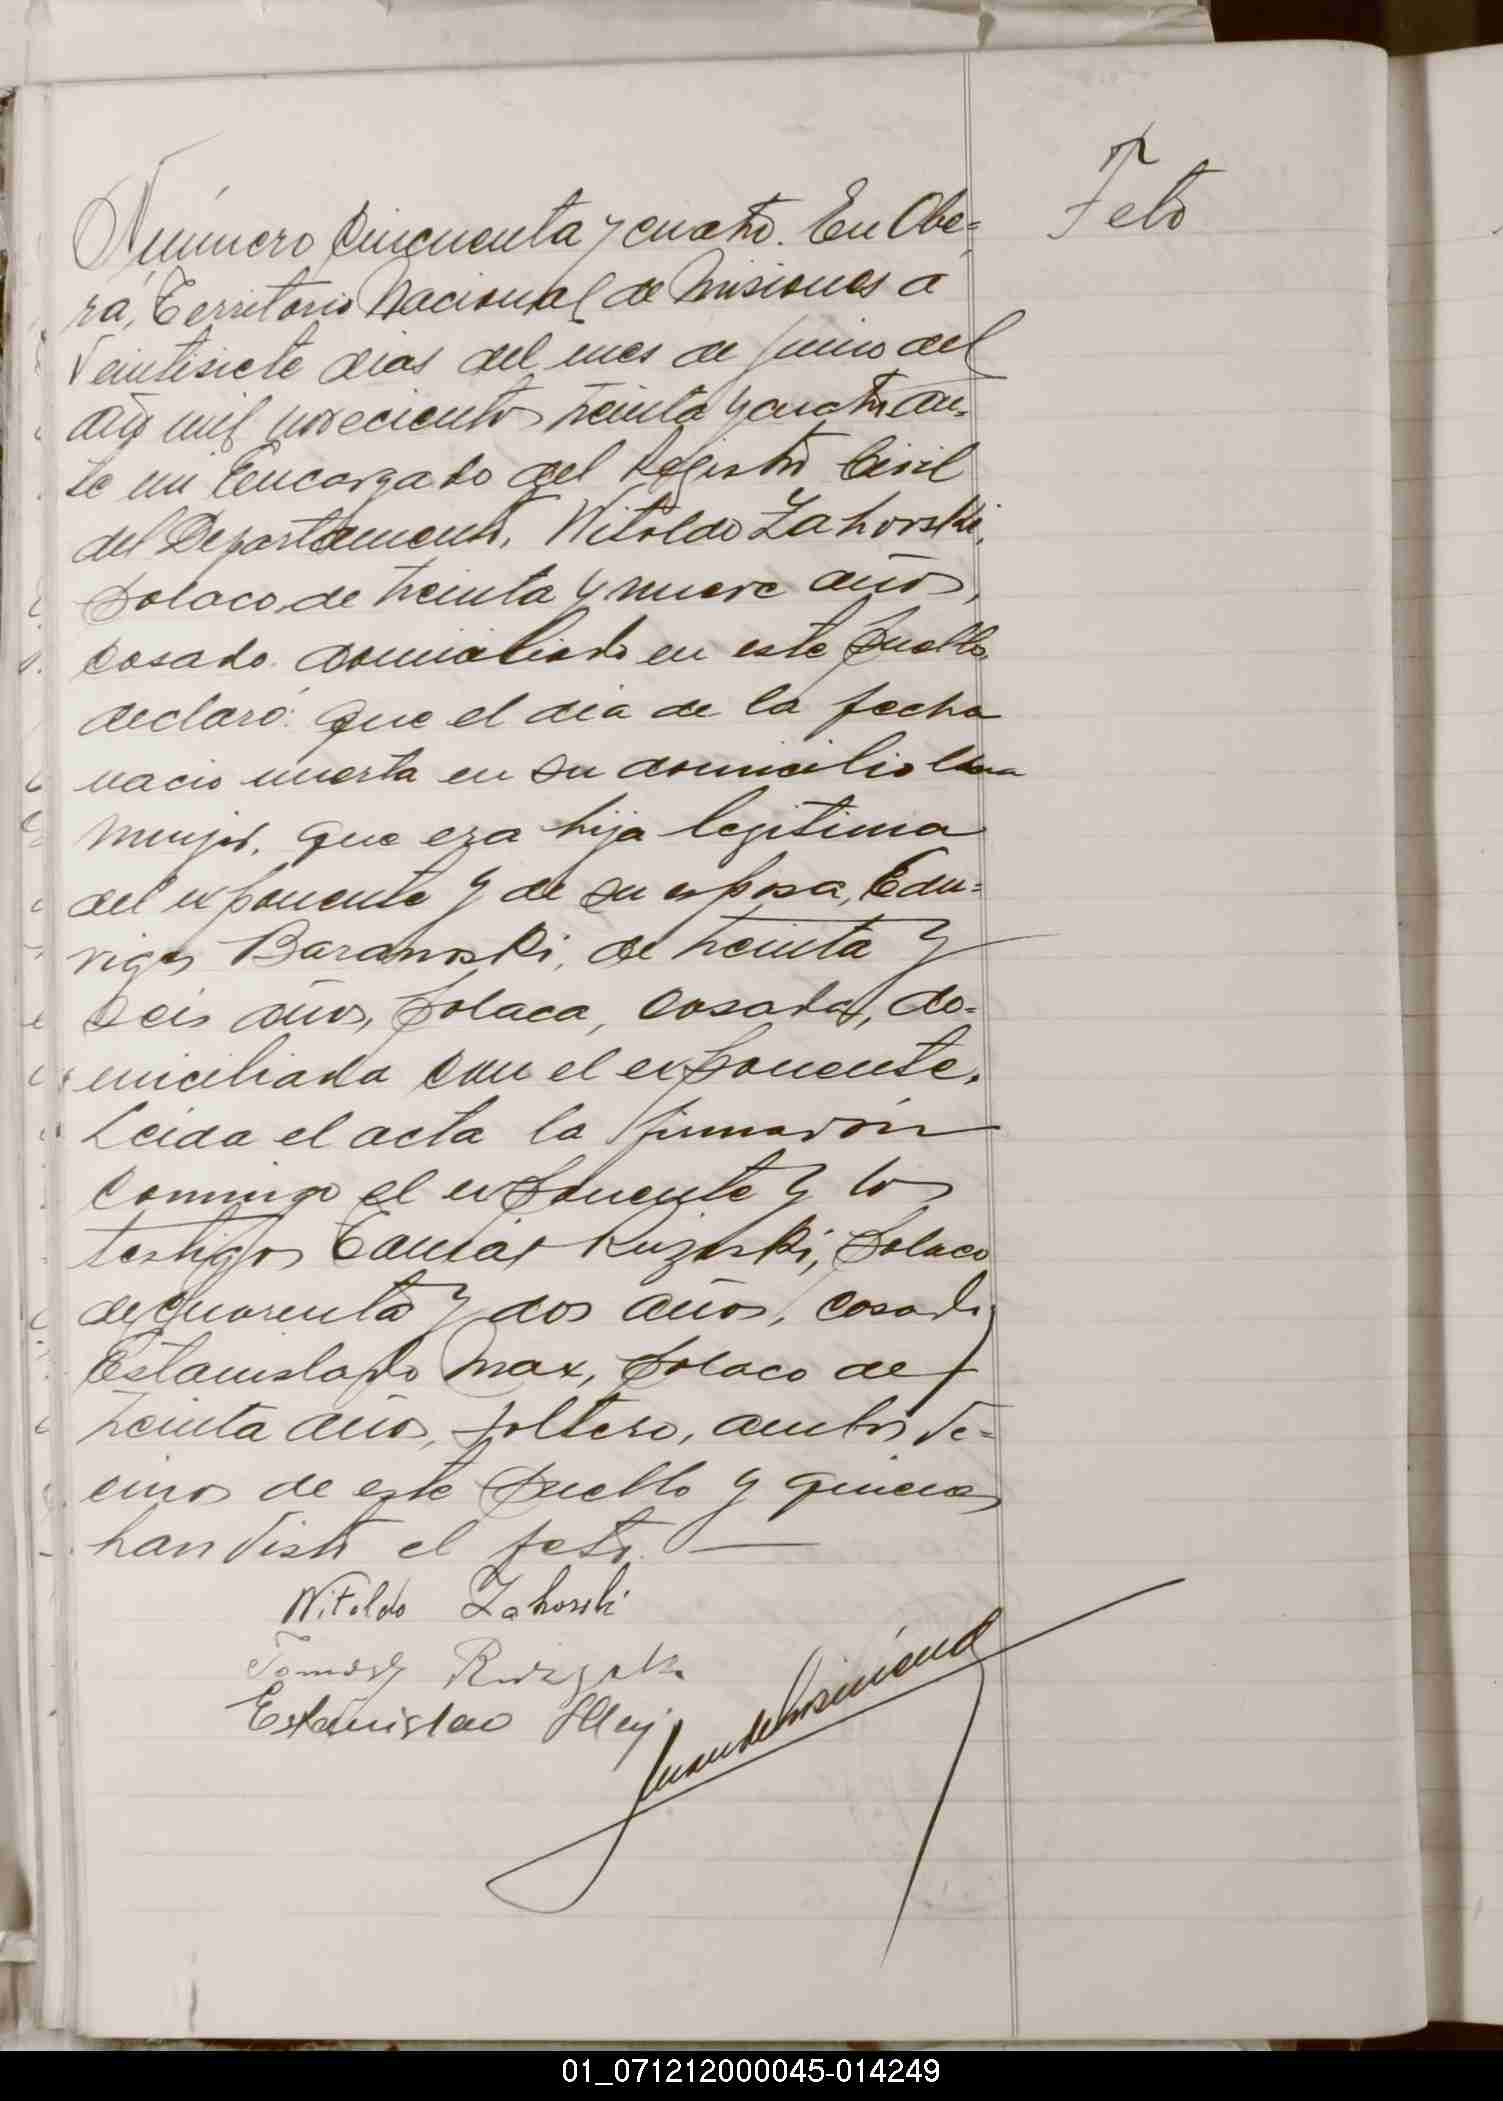 Feto
Número cincuenta y cuatro. En Obe=
rá, Territorio Nacional de Misiones a
veintisiete dias del mes de junio del
año mil novecientos treinta y cuatro an=
te mi Encargado del Registro Civil
del Departamento, Witoldo Zahorski,
polaco, de treinta y nueve años,
casado domiciliado en este pueblo,
declaró: Que el dia de la fecha
nacio muerta en su domicilio una
mujer, que era hija legitima
del exponente y de su esposa, Edu=
viges Baranoski, de treinta y
seis años, polaca, casada, do=
miciliada con el exponente.
Leida el acta la firmarón
conmigo el exponente y los
testigos Kuzeski, polaco
de cuarenta y dos años, casado
Estanislado Max, polaco de
treinta años, soltero, ambos ve=
cinos de este pueblo y quienes
han visto el feto. —
Witoldo Zahorski
Tomasz
Estanislao
01_071212000045-014249